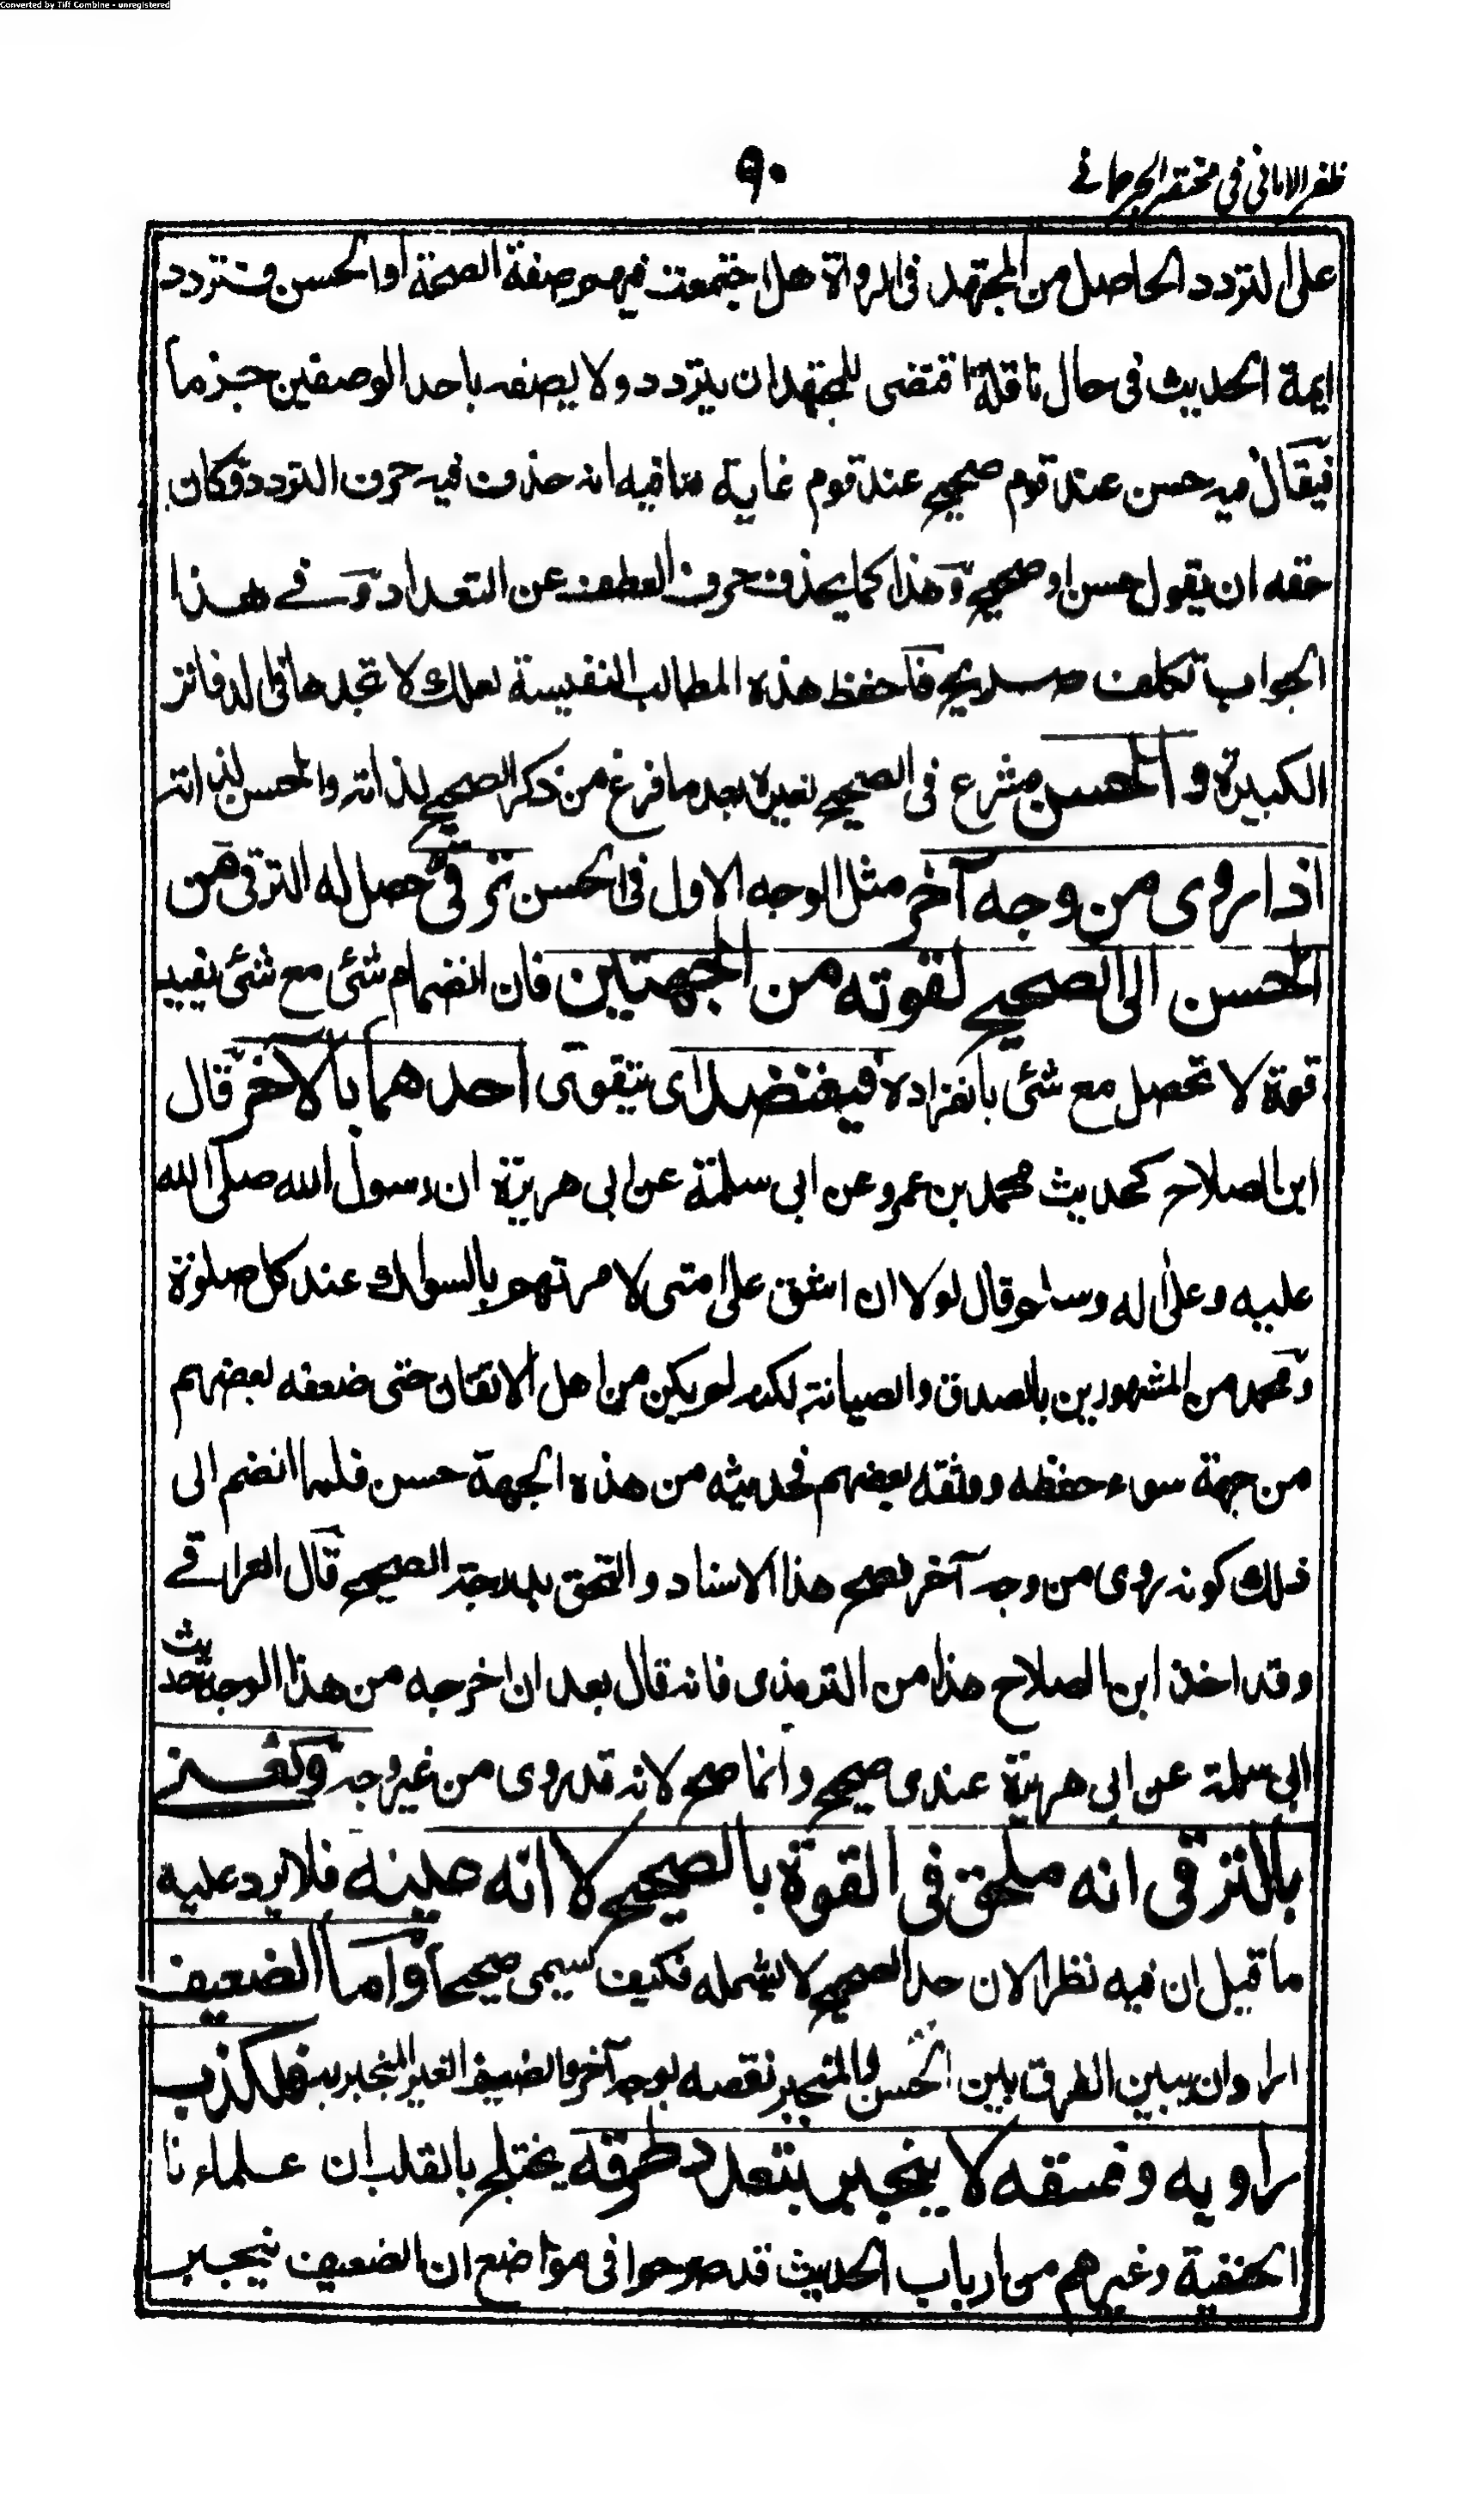 Converted by Tiff Combine - unregistered
ظفر الامانى فى مختصر الجرجانے
٩٠
على التردد الحاصل من المجتهد فى الرواة هل اجتمعت فيهم صفة الصحة او الحسن فتردد
ايمة الحديث فى حال ناقلة اقتضى للمجتهد ان يتردد ولا يصفه باحد الوصفين جزما
فيقال فيه حسن عند قوم صحيح عند قوم غاية ما فيه انه حذف فيه حرف التردد وكان
حقه ان يقول حسن او صحيح وهذا كما يحذف حرف العطف عن التعداد وفے هذا
الجواب تكلف صريح فاحفظ هذه المطالب النفيسة لعلك لا تجدها فى الدفاتر
الكبيرة والحسن شرع فى الصحيح لغيره بعد ما فرغ من ذكر الصحيح لذاته والحسن لذاته
اذا روى من وجه آخر مثل الوجه الاول فى الحسن ترقى حصل له الترقى من
الحسن الى الصحيح لقوته من الجهتين فان انضمام شئ مع شئ يفيد
قوة لا تحصل مع شئ بانفراده فيعتضد اى يتقوى احدهما بالآخر قال
ابن الصلاح كحديث محمد بن عمرو عن ابى سلمة عن ابى هريرة ان رسول الله صلى الله
عليه وعلى اله وسلم قال لولا ان اشق على امتى لامرتهم بالسواك عند كل صلوة
ومحمد من المشهورين بالصدق والصيانة لكنه لم يكن من اهل الاتقان حتى ضعفه بعضهم
من جهة سوء حفظه ووثقه بعضهم فحديثه من هذه الجهة حسن فلما انضم الى
ذلك كونه روى من وجه آخر صح هذا الاسناد والتحق بدرجة الصحيح قال العراقے
وقد اخذ ابن الصلاح هذا من الترمذى فانه قال بعد ان اخرجه من هذا الوجه حديث
ابى سلمة عن ابى هريرة عندى صحيح وانما صح لانه قد روى من غير وجه ونعنى
بالترقى انه ملحق فى القوة بالصحيح لا انه عينه فلا يرد عليه
ما قيل ان فيه نظرا لان حد الصحيح لا يشمله فكيف يسمى صحيحا واما الضعيف
اراد ان يبين الفرق بين الحسن المنجبر نقصه بوجه آخر والضعيف الغير المنجبر به فلكذب
راويه وفسقه لا ينجبر بتعدد طرقه يختلج بالقلب ان علماءنا
الحنفية وغيرهم من ارباب الحديث قد صرحوا فى مواضع ان الضعيف ينجبر